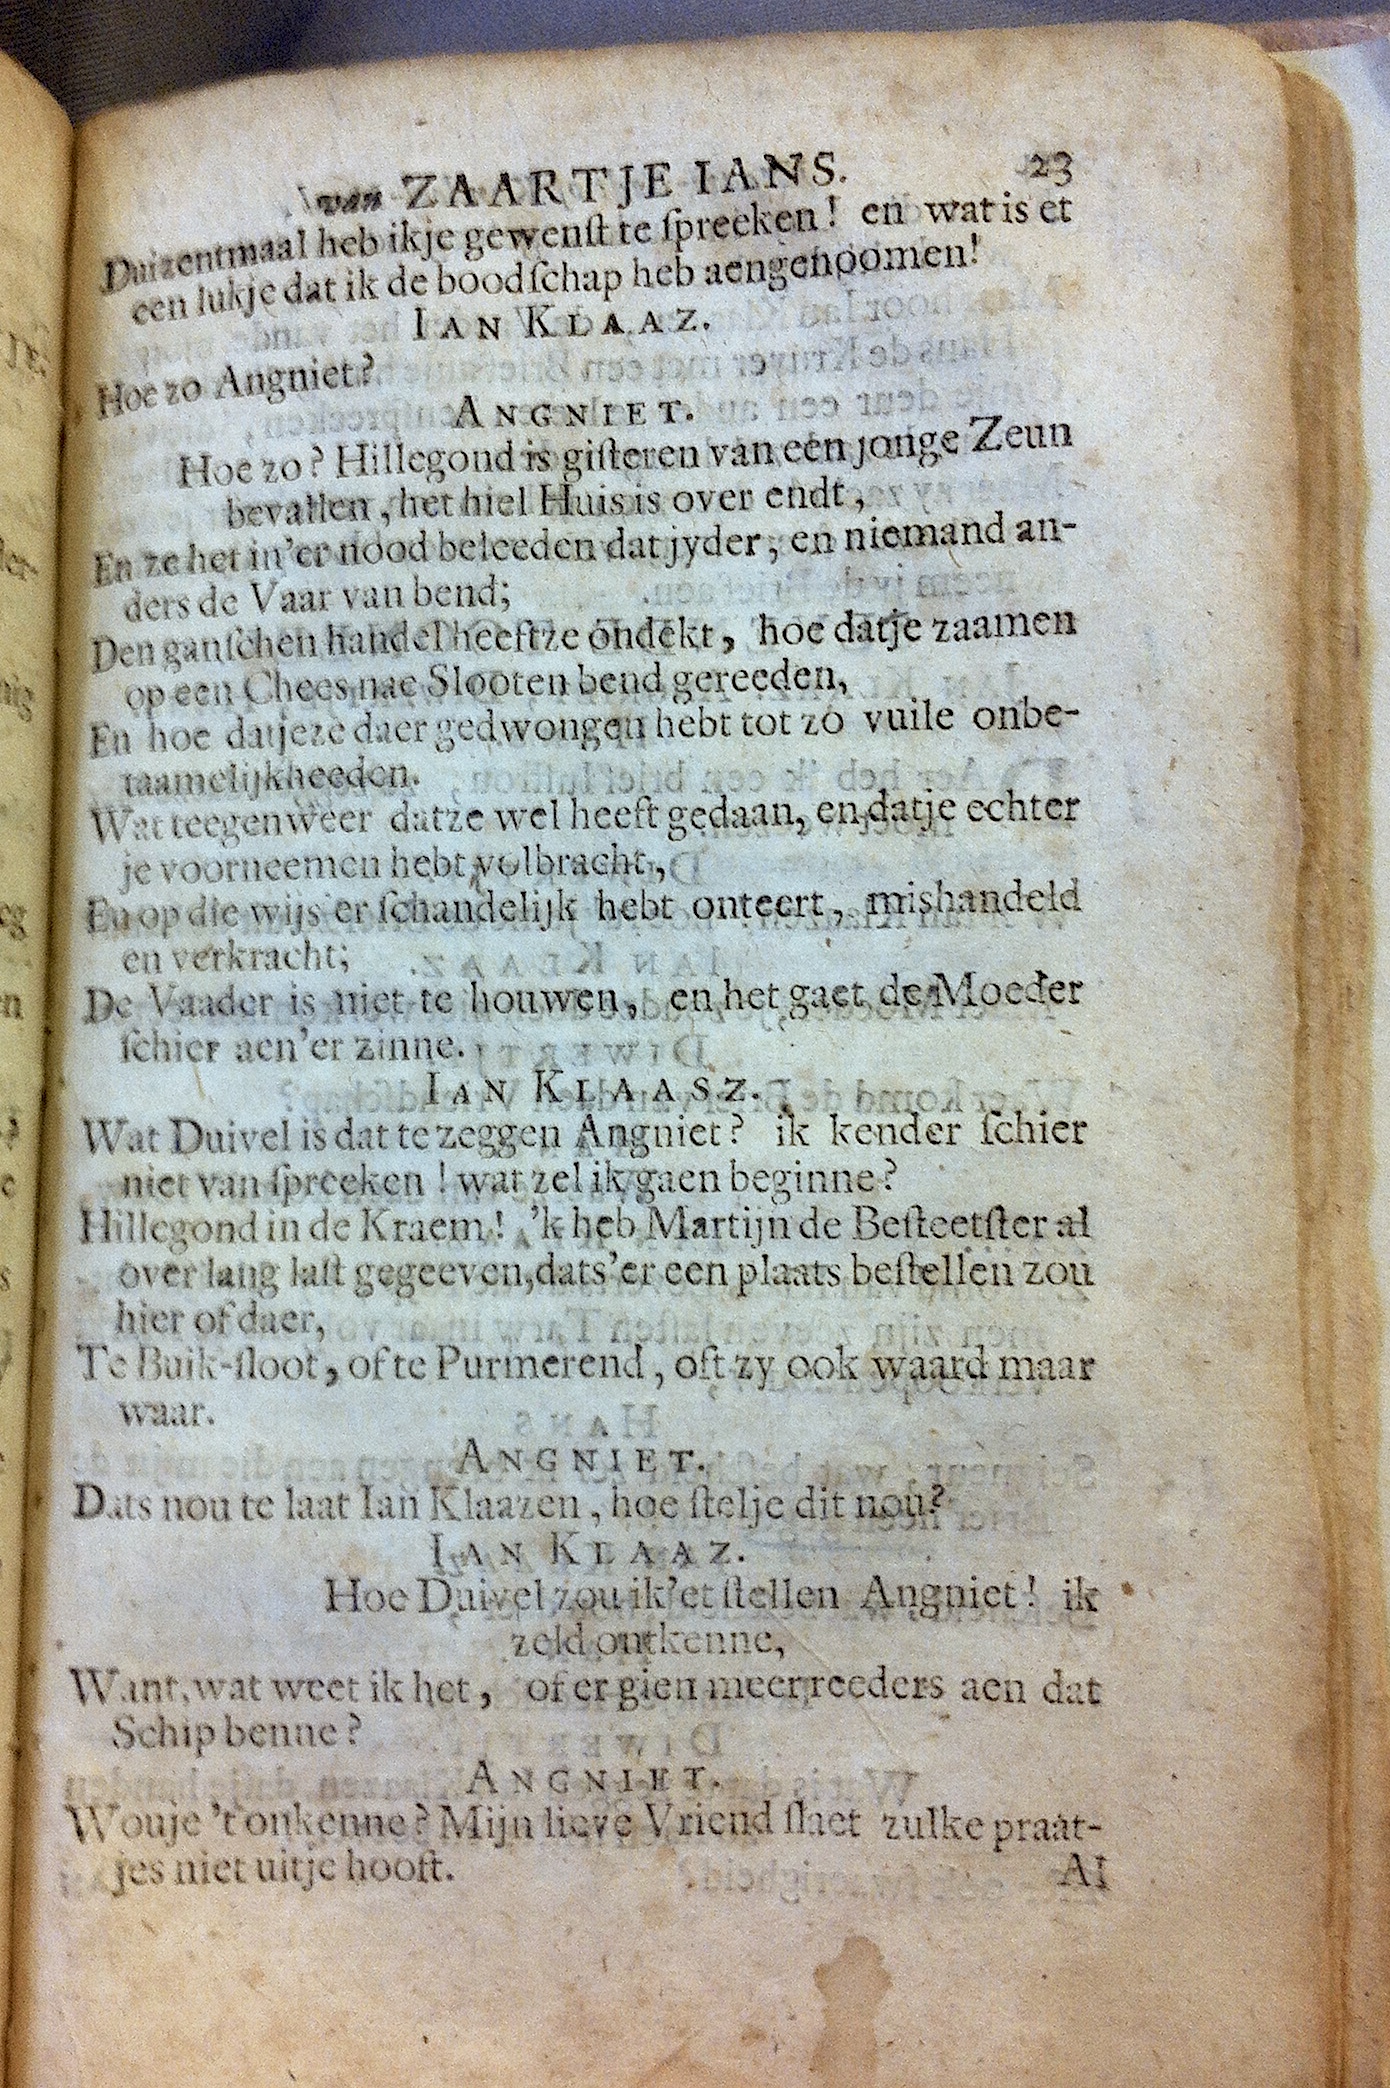 van ZAARTJE IANS. 23
Duizentmaal heb ikje gewenſt te ſpreeken! en wat is et
een lukje dat ik de boodſchap heb aengenoomen!
IAN KLAAZ.
Hoe zo Angniet?
ANGNIET.
Hoe zo? Hillegond is giſteren van een jonge Zeun
bevallen, het hiel Huis is over endt,
En ze het in'er nood beleeden dat jyder, en niemand an-
ders de Vaar van bend;
Den ganſchen handel heeftze ondekt, hoe datje zaamen
op een Chees nae Slooten bend gereeden,
En hoe datjeze daer gedwongen hebt tot zo vuile onbe-
taamelijkheeden.
Wat teegenweer datze wel heeft gedaan, en datje echter
je voorneemen hebt volbracht,
En op die wijs er ſchandelijk hebt onteert, mishandeld
en verkracht;
De Vaader is niet te houwen, en het gaet de Moeder
ſchier aen'er zinne.
IAN KLAASZ.
Wat Duivel is dat te zeggen Angniet? ik kender ſchier
niet van ſpreeken! wat zel ik gaen beginne?
Hillegond in de Kraem! 'k heb Martijn de Beſteetſter al
over lang laſt gegeeven, dats'er een plaats beſtellen zou
hier of daer,
Te Buik-ſloot, of te Purmerend, oft zy ook waard maar
waar.
ANGNIET.
Dats nou te laat Ian Klaazen, hoe ſtelje dit nou?
IAN KLAAZ.
Hoe Duivel zou ik'et ſtellen Angniet! ik
zeld ontkenne,
Want, wat weet ik het, of er gien meer reeders aen dat
Schip benne?
ANGNIET.
Wouje 't onkenne? Mijn lieve Vriend ſlaet zulke praat-
jes niet uitje hooft.
Al